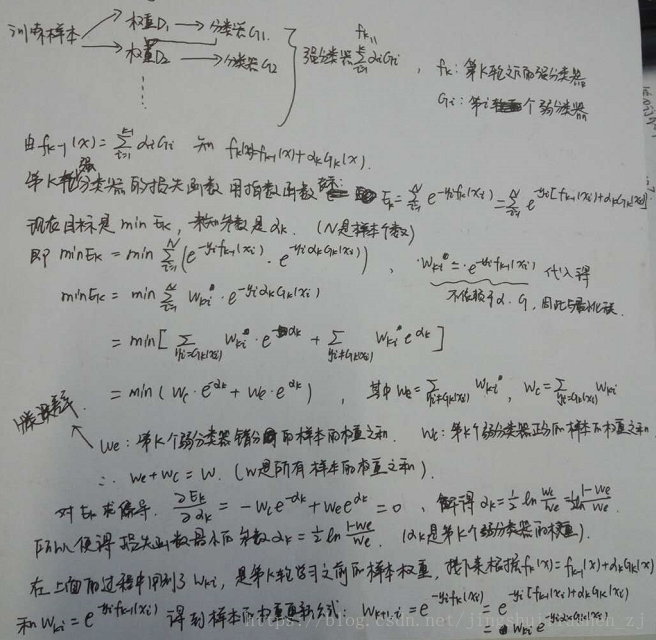 训练样本 → 权重D₁ → 分类器G₁
→ 权重D₂ → 分类器G₂
强分类器 fₖ = Σᵢ₌₁ᵏ αᵢGᵢ , fₖ: 第K轮之后的强分类器
Gᵢ: 第i个弱分类器
由 fₖ₋₁(x) = Σᵢ₌₁ᵏ⁻¹ αᵢGᵢ 知 fₖ(x)=fₖ₋₁(x)+αₖGₖ(x).
第K轮强分类器的损失函数用指数函数 Eₖ = Σᵢ₌₁ᴺ e^{-yᵢfₖ(xᵢ)} = Σᵢ₌₁ᴺ e^{-yᵢ[fₖ₋₁(xᵢ)+αₖGₖ(xᵢ)]}
现在目标是 min Eₖ, 参数是αₖ. (N是样本个数)
即 minEₖ = min Σᵢ₌₁ᴺ (e^{-yᵢfₖ₋₁(xᵢ)} · e^{-yᵢαₖGₖ(xᵢ)}) , Wₖᵢ = e^{-yᵢfₖ₋₁(xᵢ)} 代入得
不依赖于α·G, 因此与最小化无关.
minEₖ = min Σᵢ₌₁ᴺ Wₖᵢ · e^{-yᵢαₖGₖ(xᵢ)}
= min[ Σ_{yᵢ=Gₖ(xᵢ)} Wₖᵢ · e^{-αₖ} + Σ_{yᵢ≠Gₖ(xᵢ)} Wₖᵢ e^{αₖ} ]
= min (Wc · e^{-αₖ} + We · e^{αₖ}) , 其中 We = Σ_{yᵢ≠Gₖ(xᵢ)} Wₖᵢ , Wc = Σ_{yᵢ=Gₖ(xᵢ)} Wₖᵢ
We: 第K个弱分类器错分的样本的权重之和. Wc: 第K个弱分类器正分的样本的权重之和
∴ We+Wc = W. (W是所有样本的权重之和).
对Eₖ求偏导. ∂Eₖ/∂αₖ = -Wce^{-αₖ} + Wee^{αₖ} = 0 , 解得 αₖ = ½ ln Wc/We = ½ ln (1-We)/We.
所以使得损失函数最小的参数 αₖ = ½ ln (1-We)/We. (αₖ是第K个弱分类器的权重).
在上面的过程中用到了 Wₖᵢ, 是第K轮学习之前的样本权重, 接下来根据 fₖ(x) = fₖ₋₁(x)+αₖGₖ(x)
和 Wₖᵢ = e^{-yᵢfₖ₋₁(xᵢ)} 得到样本的权重更新公式: Wₖ₊₁,ᵢ = e^{-yᵢfₖ(xᵢ)} = e^{-yᵢ[fₖ₋₁(xᵢ)+αₖGₖ(xᵢ)]}
= Wₖᵢ e^{-yᵢαₖGₖ(xᵢ)}